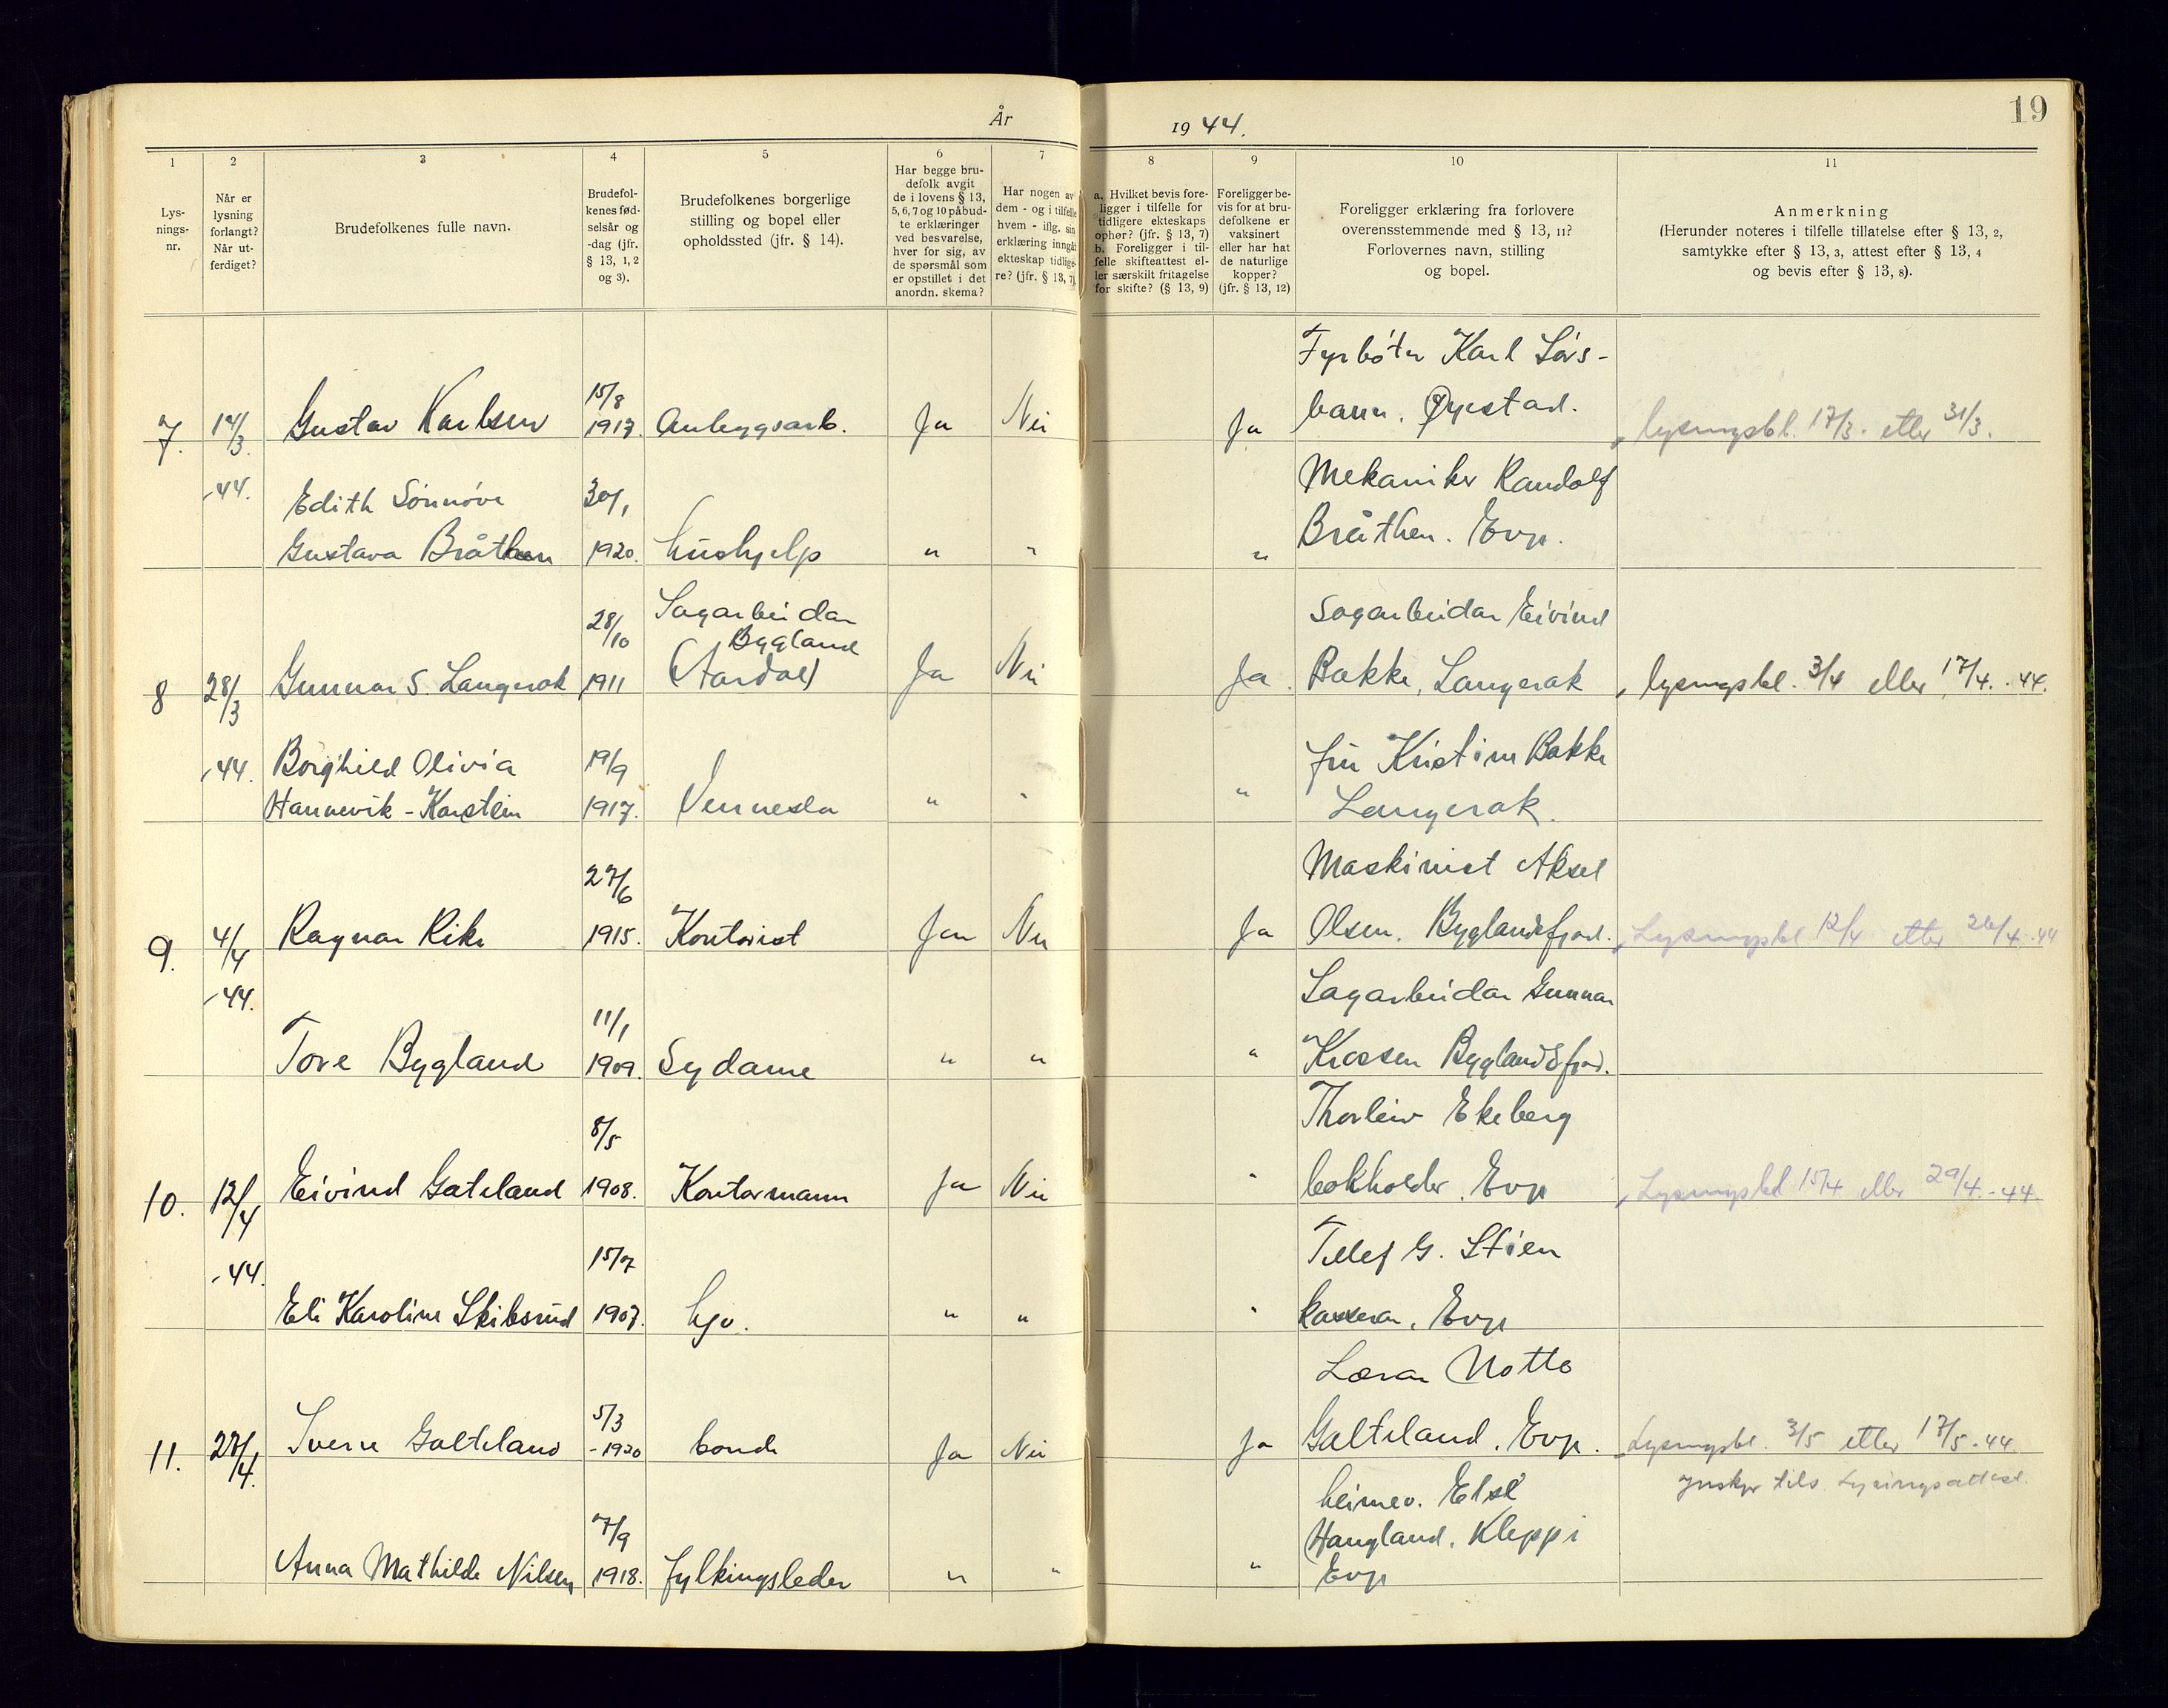 År 1944.
19
1
2
3
4
5
6
7
8
9
10
11
Lys-
nings-
nr.
Når er
lysning
forlangt?
Når ut-
ferdiget?
Brudefolkenes fulle navn.
Brudefol-
kenes fød-
selsår og
-dag (jfr.
§ 13, 1, 2
og 3).
Brudefolkenes borgerlige
stilling og bopel eller
opholdssted (jfr. § 14).
Har begge bru-
defolk avgit
de i lovens § 13,
5, 6, 7 og 10 påbud-
te erklæringer
ved besvarelse,
hver for sig, av
de spørsmål som
er opstillet i det
anordn. skema?
Har nogen av
dem - og i tilfelle
hvem - iflg. sin
erklæring inngått
ekteskap tidlige-
re? (jfr. § 13, 7)
a. Hvilket bevis fore-
ligger i tilfelle for
tidligere ekteskaps
ophør? (jfr. § 13, 7)
b. Foreligger i til-
felle skifteattest el-
ler særskilt fritagelse
for skifte? (§ 13, 9)
Foreligger be-
vis for at bru-
defolkene er
vaksinert
eller har hat
de naturlige
kopper?
(jfr. § 13, 12)
Foreligger erklæring fra forlovere
overensstemmende med § 13, 11?
Forlovernes navn, stilling
og bopel.
Anmerkning
(Herunder noteres i tilfelle tillatelse efter § 13, 2,
samtykke efter § 13, 3, attest efter § 13, 4
og bevis efter § 13, 8).
Fyrbøter Karl Løvs-
15/8
7. 14/3 Gustav Karlsen 1917. Anleggsarb. Ja Nei Ja bann. Øyestad. lysningsbl. 17/3. etter 31/3.
-44. Edith Sønnøve 30/1 Mekaniker Randolf
Gustava Bråthen 1920. hushjelp " " " Bråthen. Evje.
28/10 Sagarbeidar Sagarbeidar Eivind
Bygland
8 28/3 Gunnar S. Langerak 1911 (Aardal) Ja Nei Ja Bakke, Langerak lysningsbl. 3/4 eller 17/4.-44.
-44. Borghild Olivia 19/9 fru Kristine Bakke
Hannevik-Karstein 1917. Vennesla " " " Langerak.
27/6 Maskinist Aksel
9. 4/4 Ragnar Rike 1915. Kontorist Ja Nei Ja Olsen. Byglandsfjord. Lysningsbl 12/4 etter 26/4.-44
-44. 11/1 Sagarbeidar Gunnar
Tove Bygland 1909. Sydame " " " Krossen Byglandsfjord.
8/5 Thorleiv Ekeberg
10. 12/4 Eivind Gateland 1908. Kontormann Ja Nei " bokholder. Evje Lysningsbl 15/4 eller 29/4.-44.
-44. 15/7 Tellef G. Støen
Eli Karoline Skibsrud 1907. hjv. " " " kasserar, Evje
5/3 Lærar Notto
11. 27/4. Sverre Galteland -1920 bonde Ja Nei Ja Galteland. Evje. Lysningsbl. 3/5 etter 17/5-44.
heimev. Else ynskjer tils. Lysningsattest.
7/9 Haugland. Kleppe i
Anna Mathilde Nilsen 1918. fylkingsleder " " " Evje